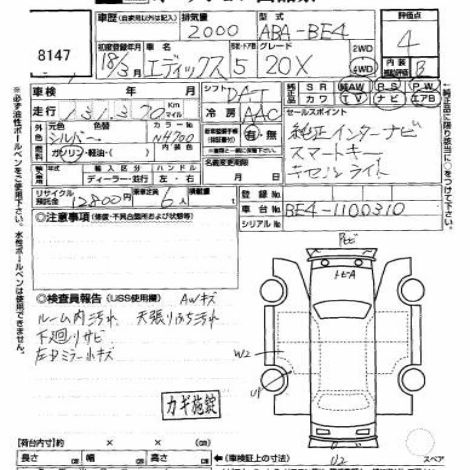 8147
車歴 (自家用以外は記入) 排気量 2000 型式 ABA-BE4 評価点 4
初度登録年月 18/3月 エディックス ドア形状 5 グレード 20X 2WD 4WD 内装補助評価 B
車検 年 月 シフト DAT 純正 SR AW PS PW
走行 131370 Km マイル 冷房 AAC カワ TV ナビ エアB
外元色 シルバー 色替 カラーNo N4700 有・無 セールスポイント
燃料 ガソリン・軽油・( ) 名義変更期限 月 日
純正インターナビ
スマートキー
キセノンライト
輸入区分 ディーラー・並行 ハンドル 左・右
リサイクル預託金 12800円 乗車定員 6人 積載量 t
登録No.
車台No. BE4-1100310
シリアルNo.
◎注意事項 (修復・不具合箇所および状態等)
◎検査員報告 (USS使用欄) AWキズ
ルーム内汚れ 天張りふち汚れ
下廻りサビ
左Dミラー小キズ
カギ施錠
Fビ
トビA
W2
UP
U2
スペア
【荷台内寸】 × × (cm)
長さ cm 幅 cm 高さ cm
←(車検証上の寸法)
※必ず油性ボールペンをご使用下さい。水性ボールペンは使用できません。